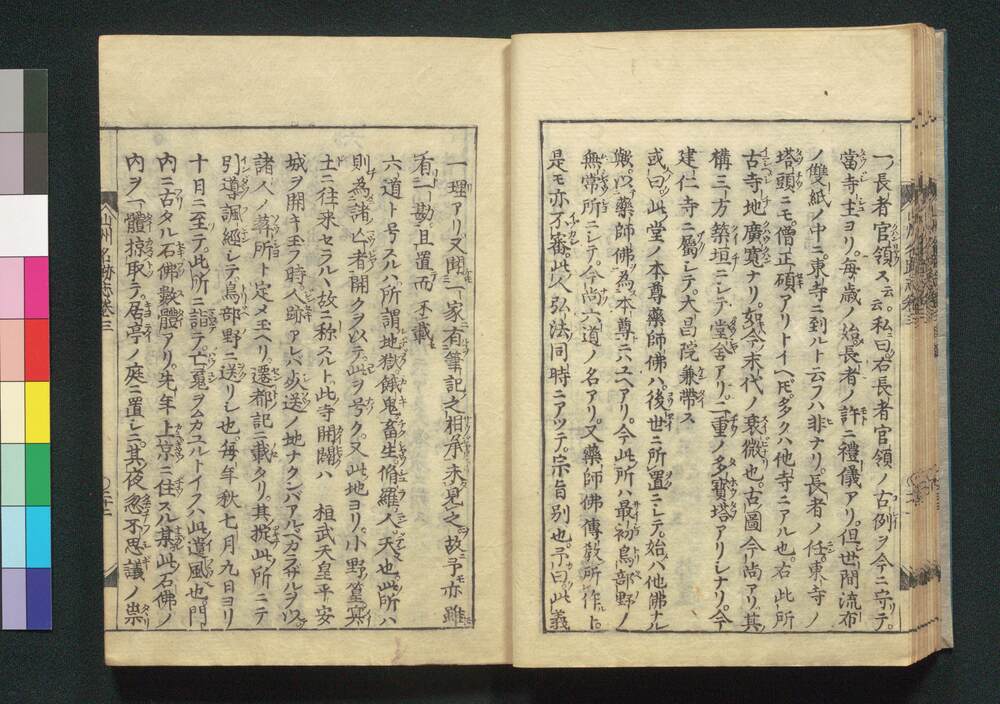 一ツ長者官領ス云云。私ニ曰右長者官領ノ古例ヲ今ニ守テ。
當寺主ヨリ。毎歳ノ始長者ノ許ニ禮儀アリ。但世間流布
ノ雙紙ノ中ニ。東寺ニ到ルト云フハ非ナリ。長者ノ任東寺ノ
塔頭ニモ。僧正碩アリトイヘ𪜈。多クハ他寺ニアル也。右此所
古寺地廣寛ナリ。如今末代ノ衰微也。古圖今尚アリ。其
構三方築垣ニシテ堂舍アリ。二重ノ多寶塔アリシナリ。今
建仁寺ニ屬シテ。大昌院兼帶ス
或曰此堂ノ本尊藥師佛ハ。後世ニ所置ニシテ。始ハ他佛ナル
歟。以藥師佛為本尊ニユヘアリ。今此所ハ最初鳥部野ノ
無常所ニシテ。今尚六道ノ名アリ。又藥師佛傳教所作ト。
是モ亦不審。此人弘法同時ニアツテ。宗旨別也。予曰此義
一理アリ。又聞一家有筆記之相承未見之故予亦雖
有一勘且置而不載
六道ト号スルハ所謂地獄餓鬼畜生脩羅人天也此所ハ
則為諸亡者開クヲ以テ此ヲ号ク。又此地ヨリ。小野篁冥
土ニ往來セラル、故ニ称スルト。此寺開闢ハ　桓武天皇平安
城ヲ開キ玉フ時人跡アレバ。必送ノ地ナクンバアルベカラザルヲ以。
諸人ノ葬所ト定メ玉ヘリ。遷都記ニ載タリ。其掟此所ニテ
引導諷經シテ鳥部野ニ送リシ也。毎年秋七月九日ヨリ
十日ニ至テ。此所ニ詣テ。亡䰟ヲムカユルトイフハ此遺風也門
内ニ古タル石佛數體アリ。先年上京ニ住スル某此石佛ノ
内ヲ一體掠取テ。居亭ノ庭ニ置シニ。其夜忽不思議ノ祟
山州名勝志卷三
〇三十二